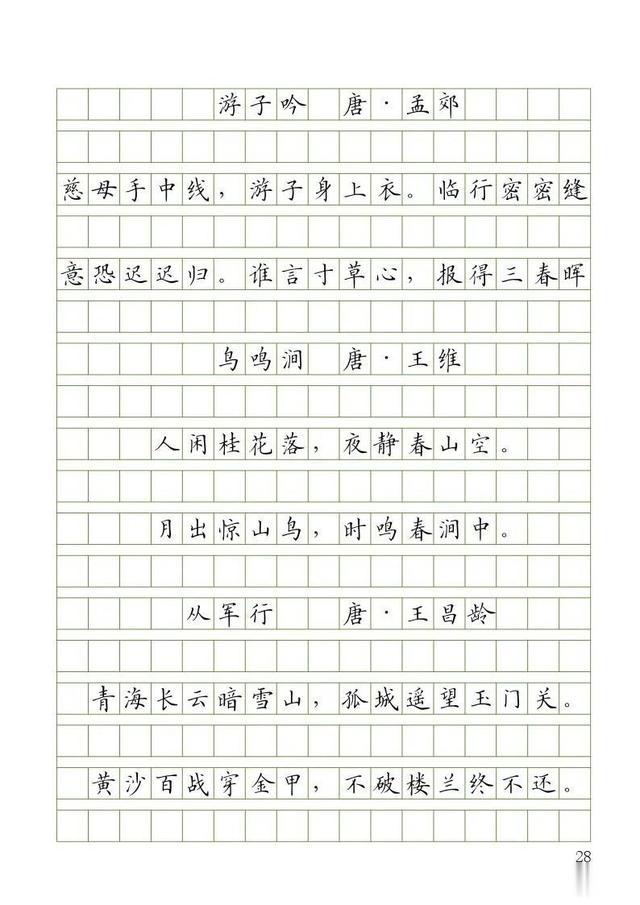 游子吟 唐·孟郊
慈母手中线，游子身上衣。临行密密缝
意恐迟迟归。谁言寸草心，报得三春晖
鸟鸣涧 唐·王维
人闲桂花落，夜静春山空。
月出惊山鸟，时鸣春涧中。
从军行 唐·王昌龄
青海长云暗雪山，孤城遥望玉门关。
黄沙百战穿金甲，不破楼兰终不还。
28